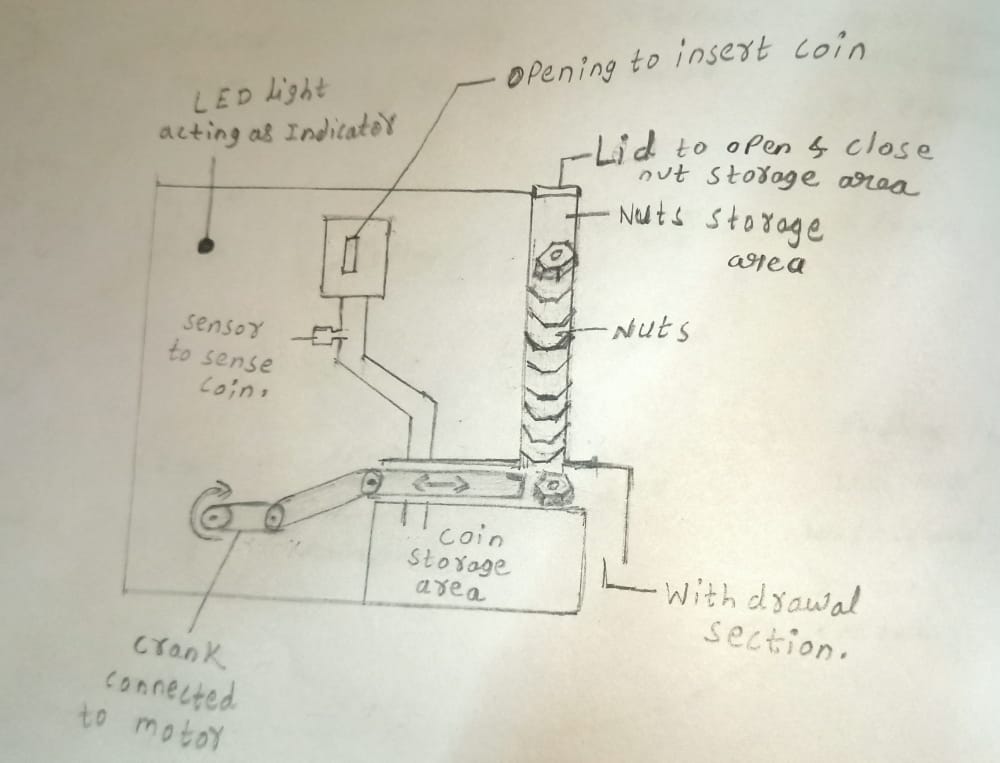 Opening to insert coin
LED light
acting as Indicator
Lid to open & close
nut storage area
Nuts storage
area
sensor
to sense
coin.
Nuts
coin
storage
area
Withdrawal
section.
crank
connected
to motor